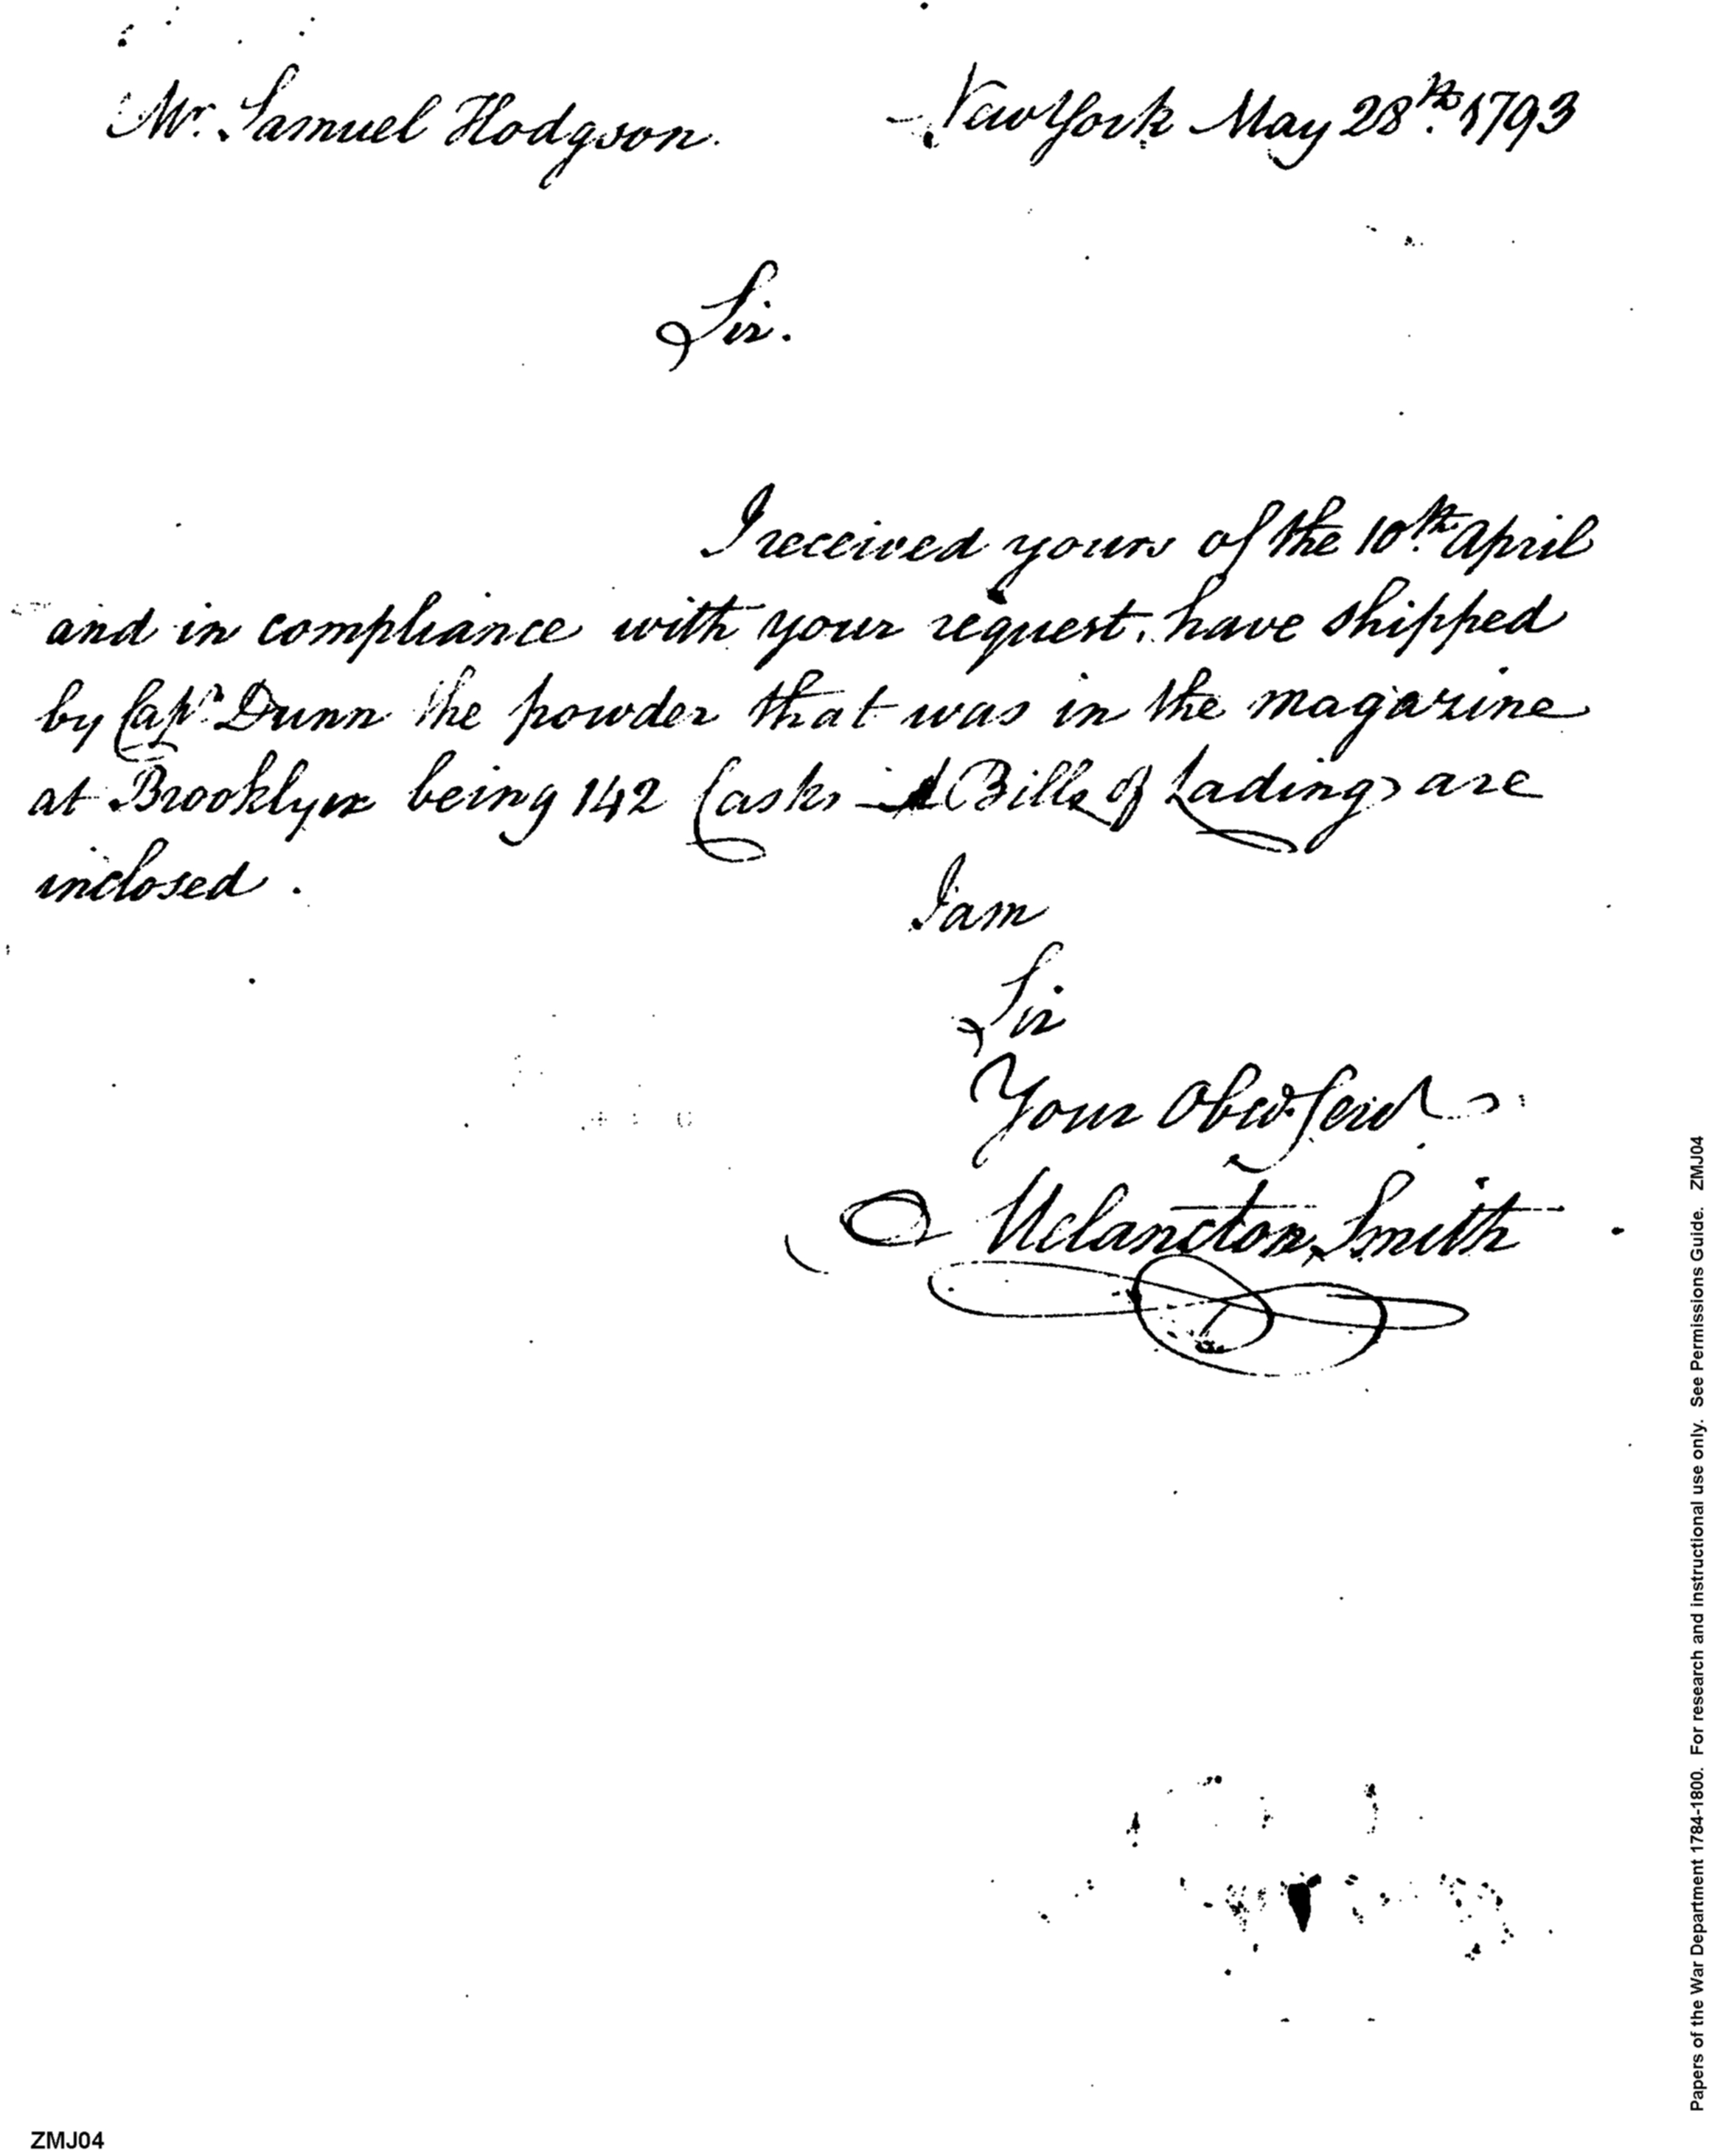 Mr. Samuel Hodgson. New York May 28th. 1793
Sir.
I received yours of the 10th. April
and in compliance with your request, have shipped
by Capt. Dunn the powder that was in the magazine
at Brooklyn being 142 Casks Bills of Lading are
inclosed.
I am
Sir
Your Obed. Servt
Melancton Smith
Papers of the War Department 1784-1800. For research and instructional use only. See Permissions Guide. ZMJ04
ZMJ04